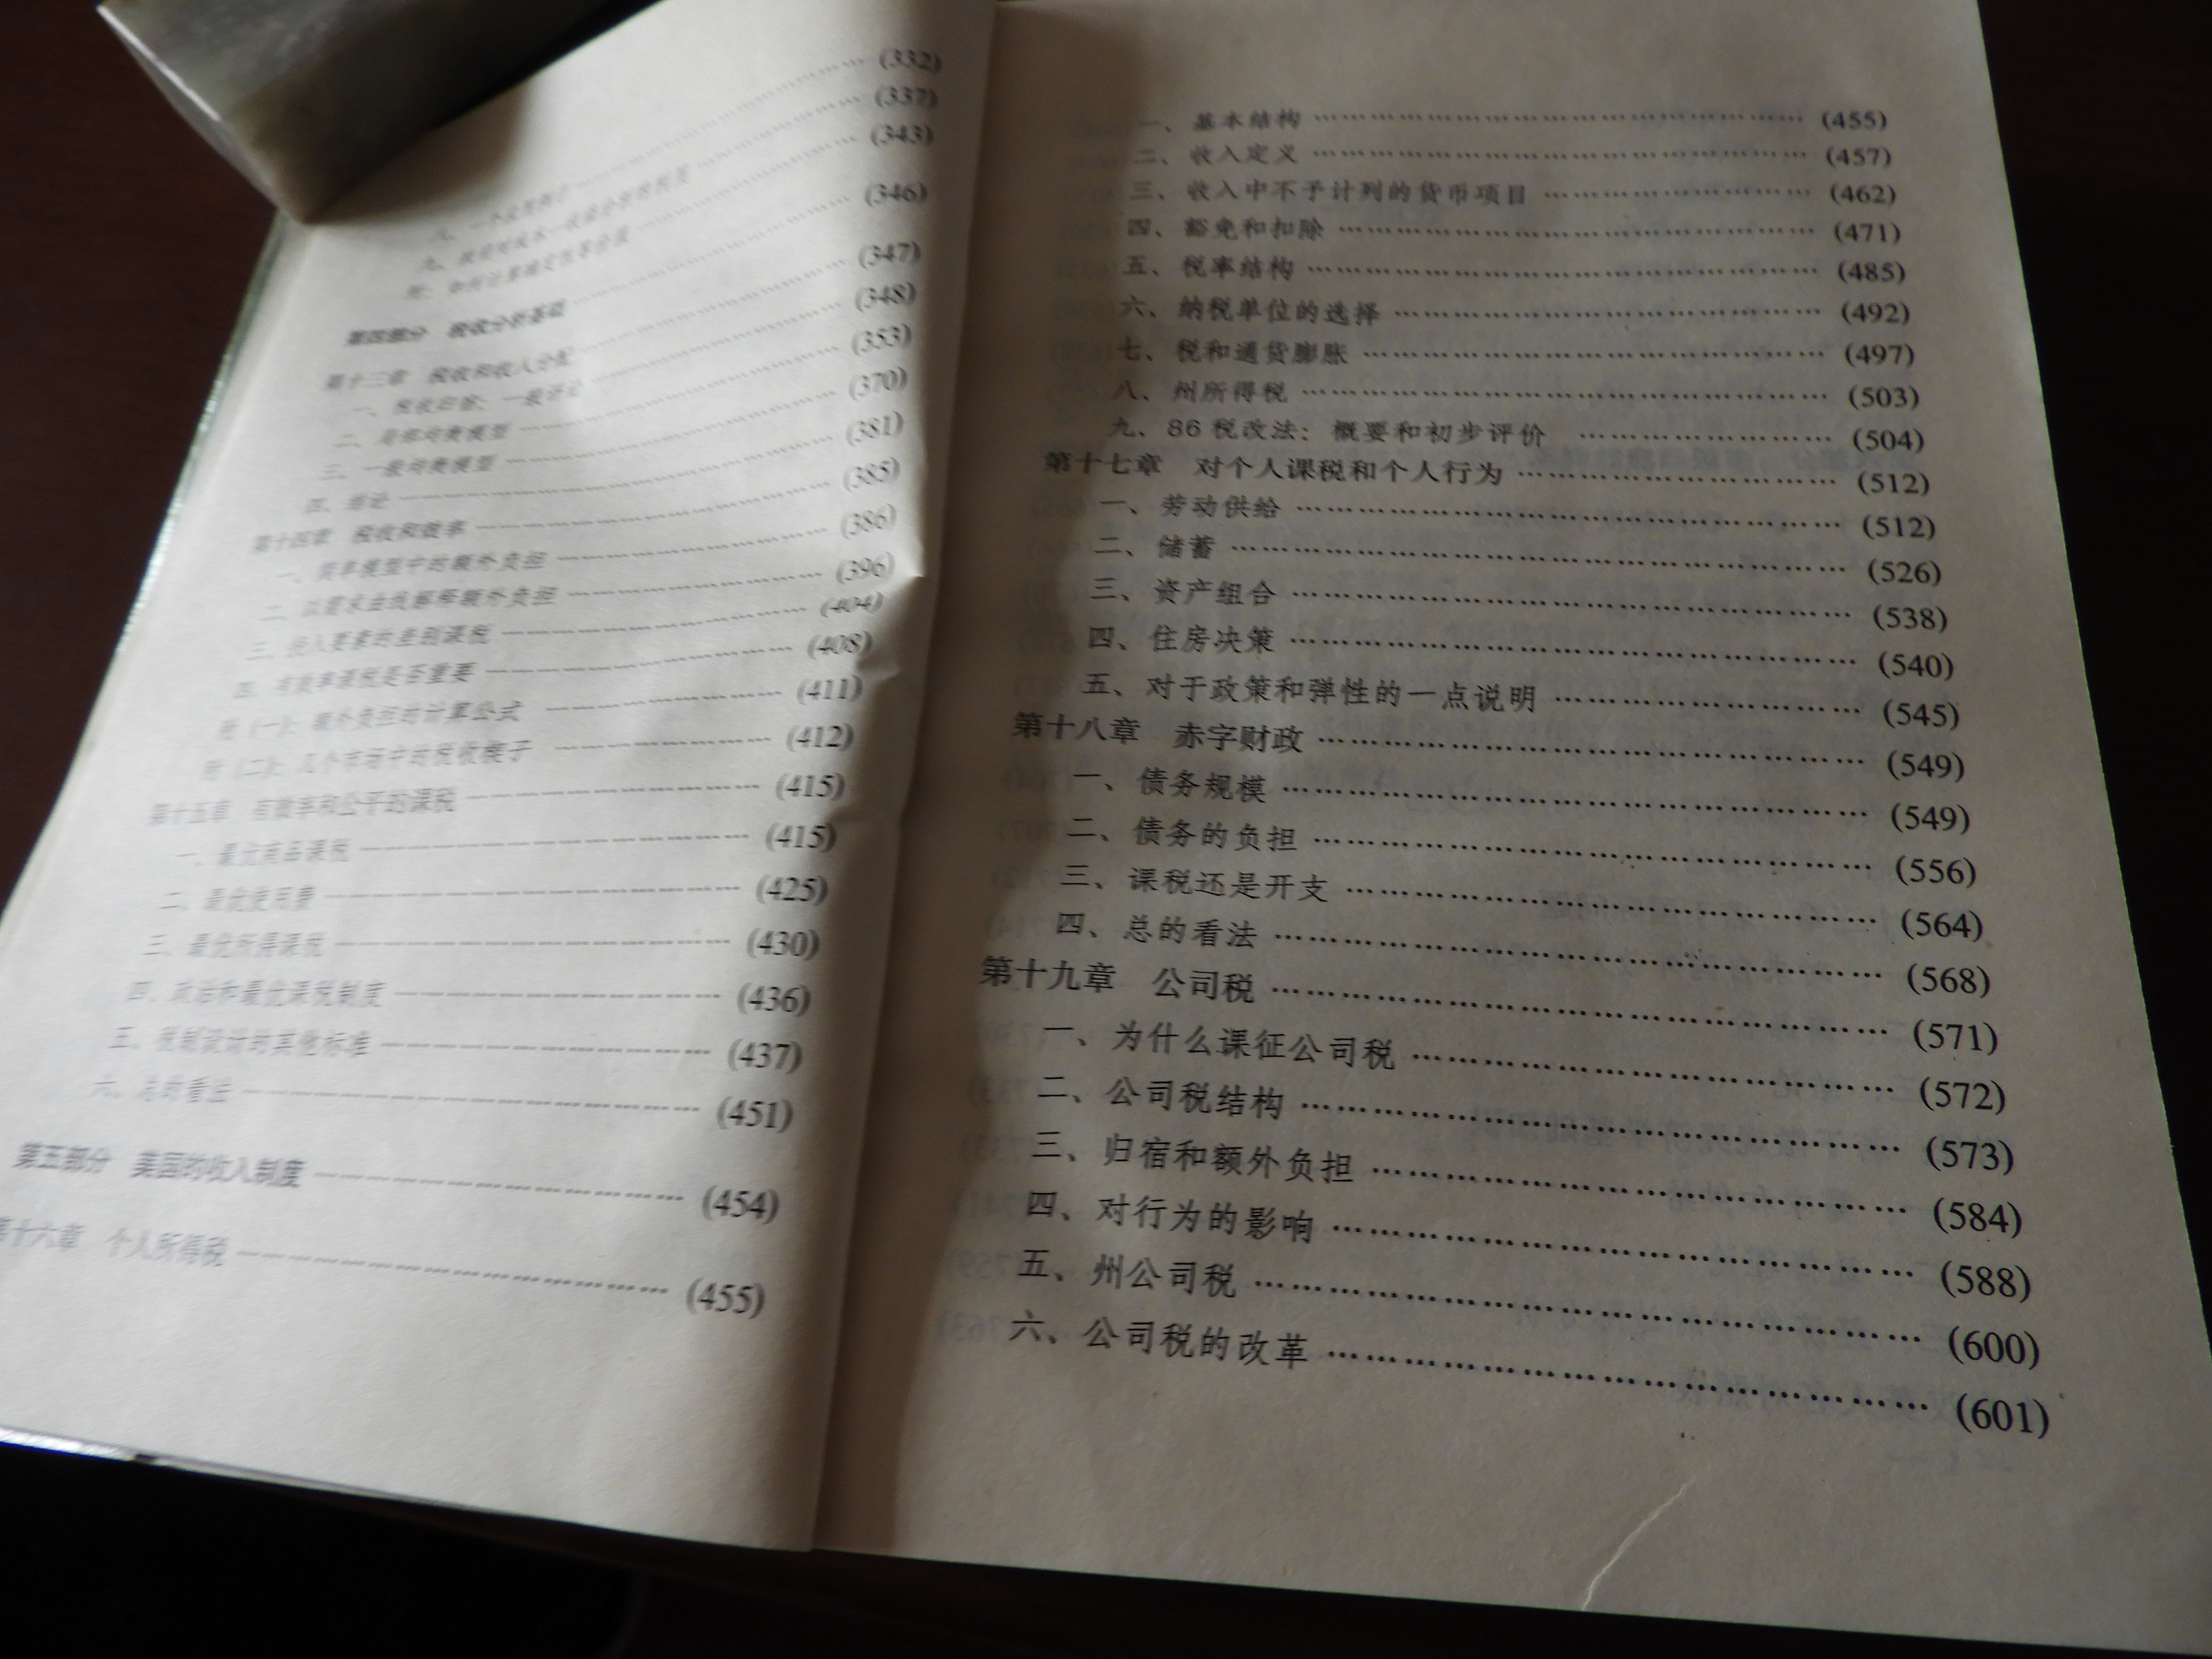 (332)
(337)
(343)
八、一个应用例子
九、政府对成本—收益分析的利用
附：如何计算确定性等价值 (346)
第四部分 税收分析基础 (347)
第十三章 税收和收入分配 (348)
一、税收归宿：一般评论 (353)
二、局部均衡模型 (370)
三、一般均衡模型 (381)
四、结论 (385)
第十四章 税收和效率 (386)
一、简单模型中的额外负担 (396)
二、以需求曲线解释额外负担 (404)
三、投入要素的差别课税 (408)
四、有效率课税是否重要 (411)
附(一)：额外负担的计算公式 (412)
附(二)：几个市场中的税收楔子 (415)
第十五章 有效率和公平的课税 (415)
一、最优商品课税 (425)
二、最优使用费 (430)
三、最优所得课税 (436)
四、政治和最优课税制度 (437)
五、税制设计的其他标准 (451)
六、总的看法
第五部分 美国的收入制度 (454)
第十六章 个人所得税 (455)
一、基本结构 (455)
二、收入定义 (457)
三、收入中不予计列的货币项目 (462)
四、豁免和扣除 (471)
五、税率结构 (485)
六、纳税单位的选择 (492)
七、税和通货膨胀 (497)
八、州所得税 (503)
九、86税改法：概要和初步评价 (504)
第十七章 对个人课税和个人行为 (512)
一、劳动供给 (512)
二、储蓄 (526)
三、资产组合 (538)
四、住房决策 (540)
五、对于政策和弹性的一点说明 (545)
第十八章 赤字财政 (549)
一、债务规模 (549)
二、债务的负担 (556)
三、课税还是开支 (564)
四、总的看法 (568)
第十九章 公司税 (571)
一、为什么课征公司税 (572)
二、公司税结构 (573)
三、归宿和额外负担 (584)
四、对行为的影响 (588)
五、州公司税 (600)
六、公司税的改革 (601)